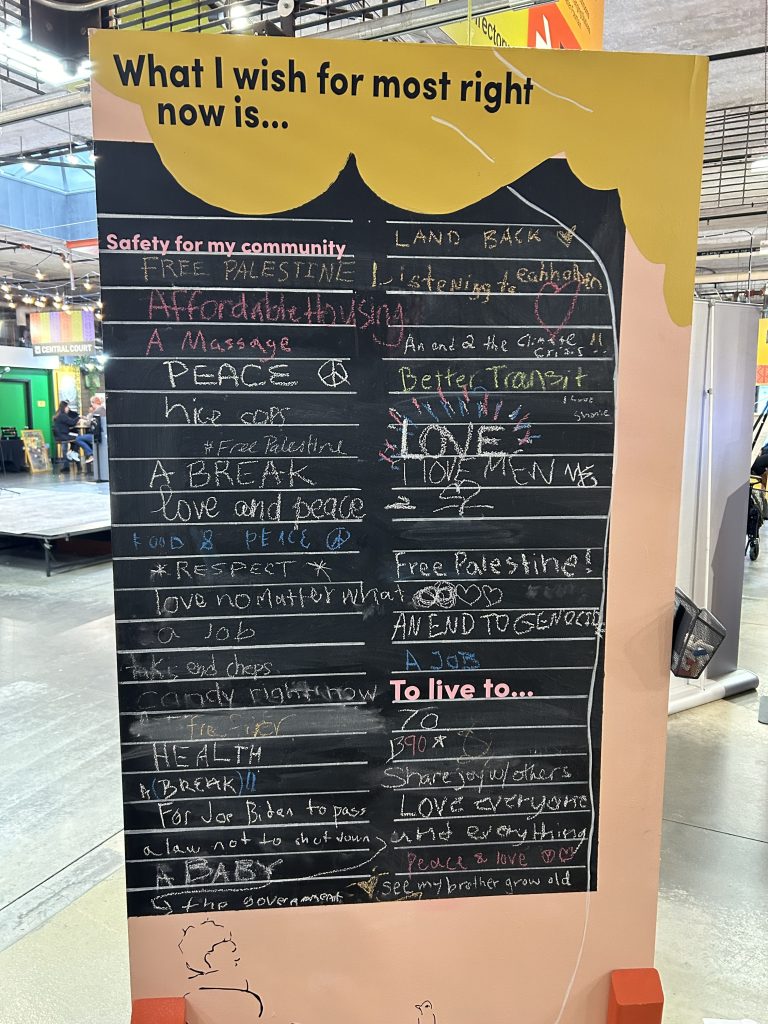 directory
What I wish for most right
now is...
CENTRAL COURT
Safety for my community
FREE PALESTINE
Affordable Housing
A Massage
PEACE
nice cops
#Free Palestine
A BREAK
love and peace
FOOD & PEACE
*RESPECT*
love no matter what
a Job
end cheps
candy right now
HEALTH
A (BREAK)!!
For Joe Biden to pass
a law not to shut down
A BABY
the government
LAND BACK
Listening to
An end 2 the Climate
Crisis !!
Better Transit
LOVE
I LOVE MEN
Free Palestine!
AN END TO GENOCIDE
A JOB
To live to...
70
390*
Share joy w/ others
Love everyone
and everything
Peace & love
see my brother grow old